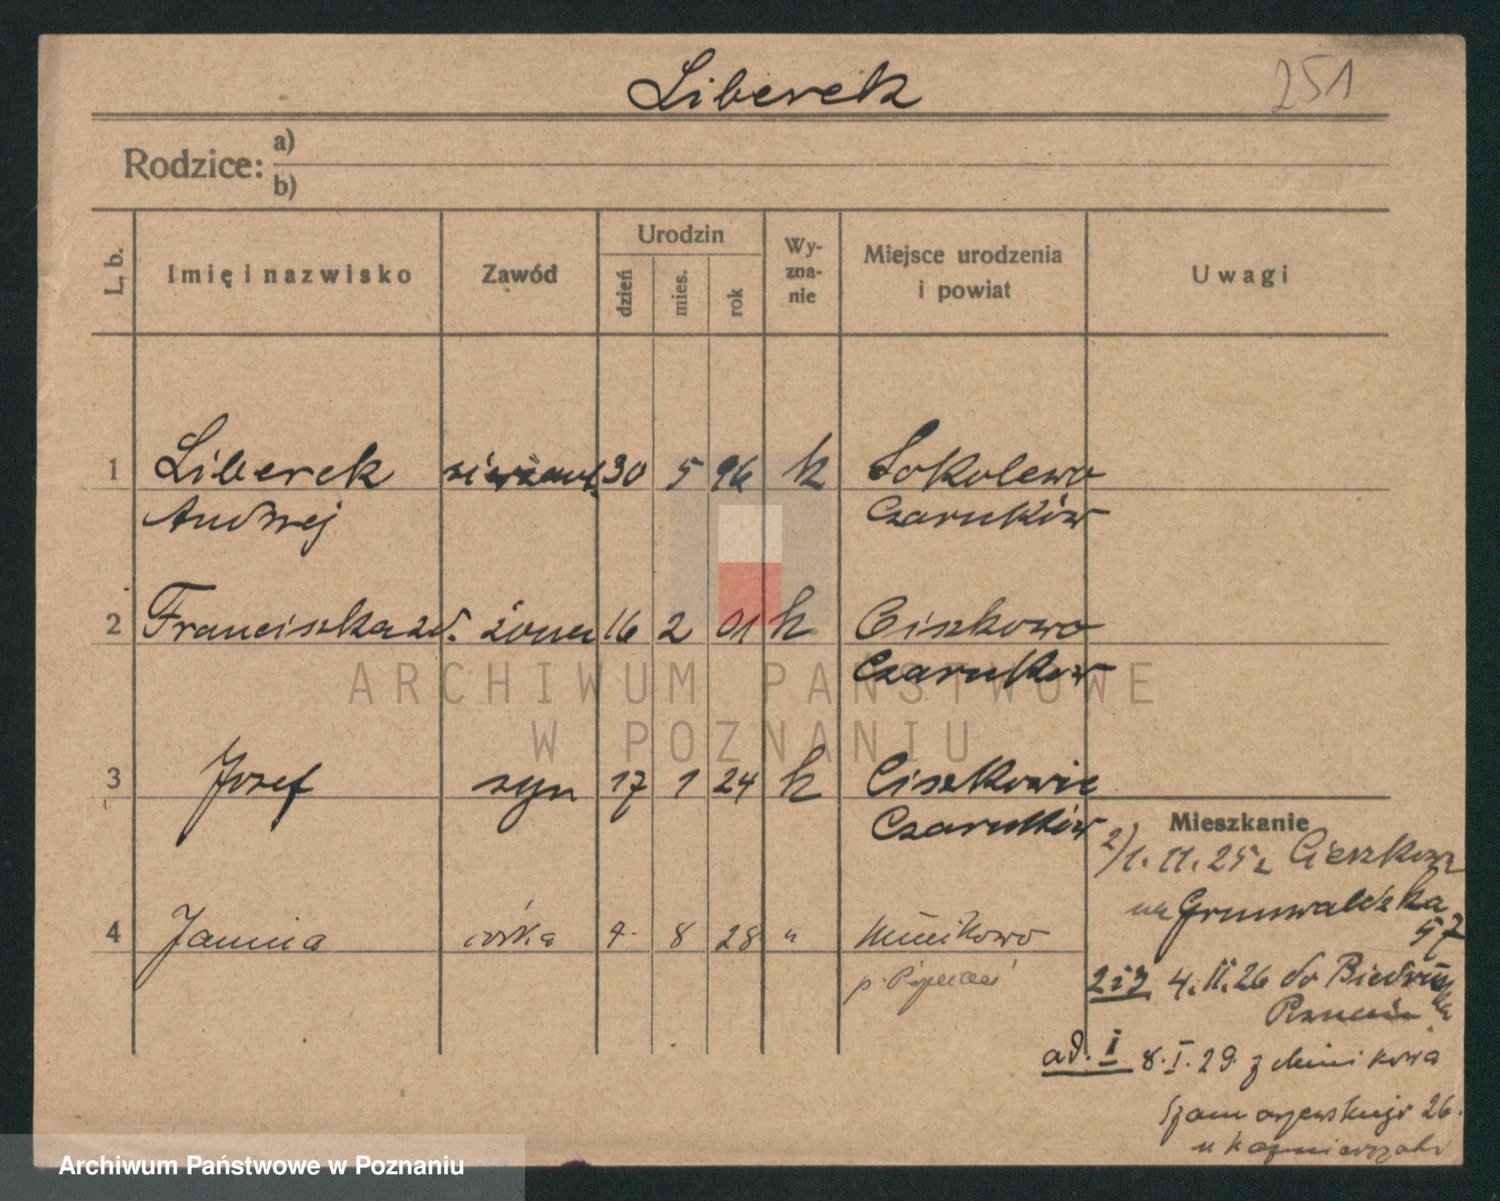 Liberek 251
Rodzice: a)
b)
L. b. Imię i nazwisko Zawód Urodzin dzień mies. rok Wy-zna-nie Miejsce urodzenia i powiat Uwagi
1 Liberek sierżant 30 5 96 k Sokolewo
Andrzej Czarnków
2 Franciszka zd. żona 16 2 01 k Ciszkowo
Czarnków
ARCHIWUM PAŃSTWOWE
W POZNANIU
3 Józef syn 17 1 24 k Ciszkowie
Czarnków
Mieszkanie
2) 1. 11. 25 z
Grunwaldzka
57
4 Janina córka 9. 8 28 " Minikowo
p. Poznań
2 i 3 4. II. 26 do
Poznań
ad. I 8. I. 29. z Minikowa
Szamarzewskiego 26.
u
Archiwum Państwowe w Poznaniu